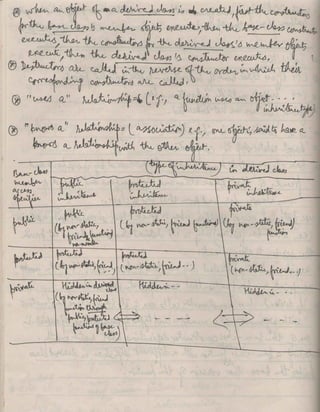 ⊛ when an object of a derived class is created, first the constructors
for the base class's member objects execute, then the base-class constructor
executes, then the constructors for the derived class's member objects
execute, then the derived class's constructor executes.
⊛ Destructors are called in the reverse of the order in which their
corresponding constructors are called.
⊛ "uses a" relationship (e.g., a function uses an object .....
inheritance type)
⊛ "knows a" relationship (association) e.g., one object is said to have a
knows a relationship with the other object.
(type of inheritance) in derived class
Base-class member access specifier
public inheritance
protected inheritance
private inheritance
public
public (by non-static, friend functions)
protected (by non-static, friend functions)
private (by non-static, friend) function
protected
protected (by non-static, friend ...)
protected (non-static, friend ..)
private (non-static, friend...)
private
Hidden in derived class (by non-static, friend function through public, protected function of base class)
Hidden ...
Hidden ...